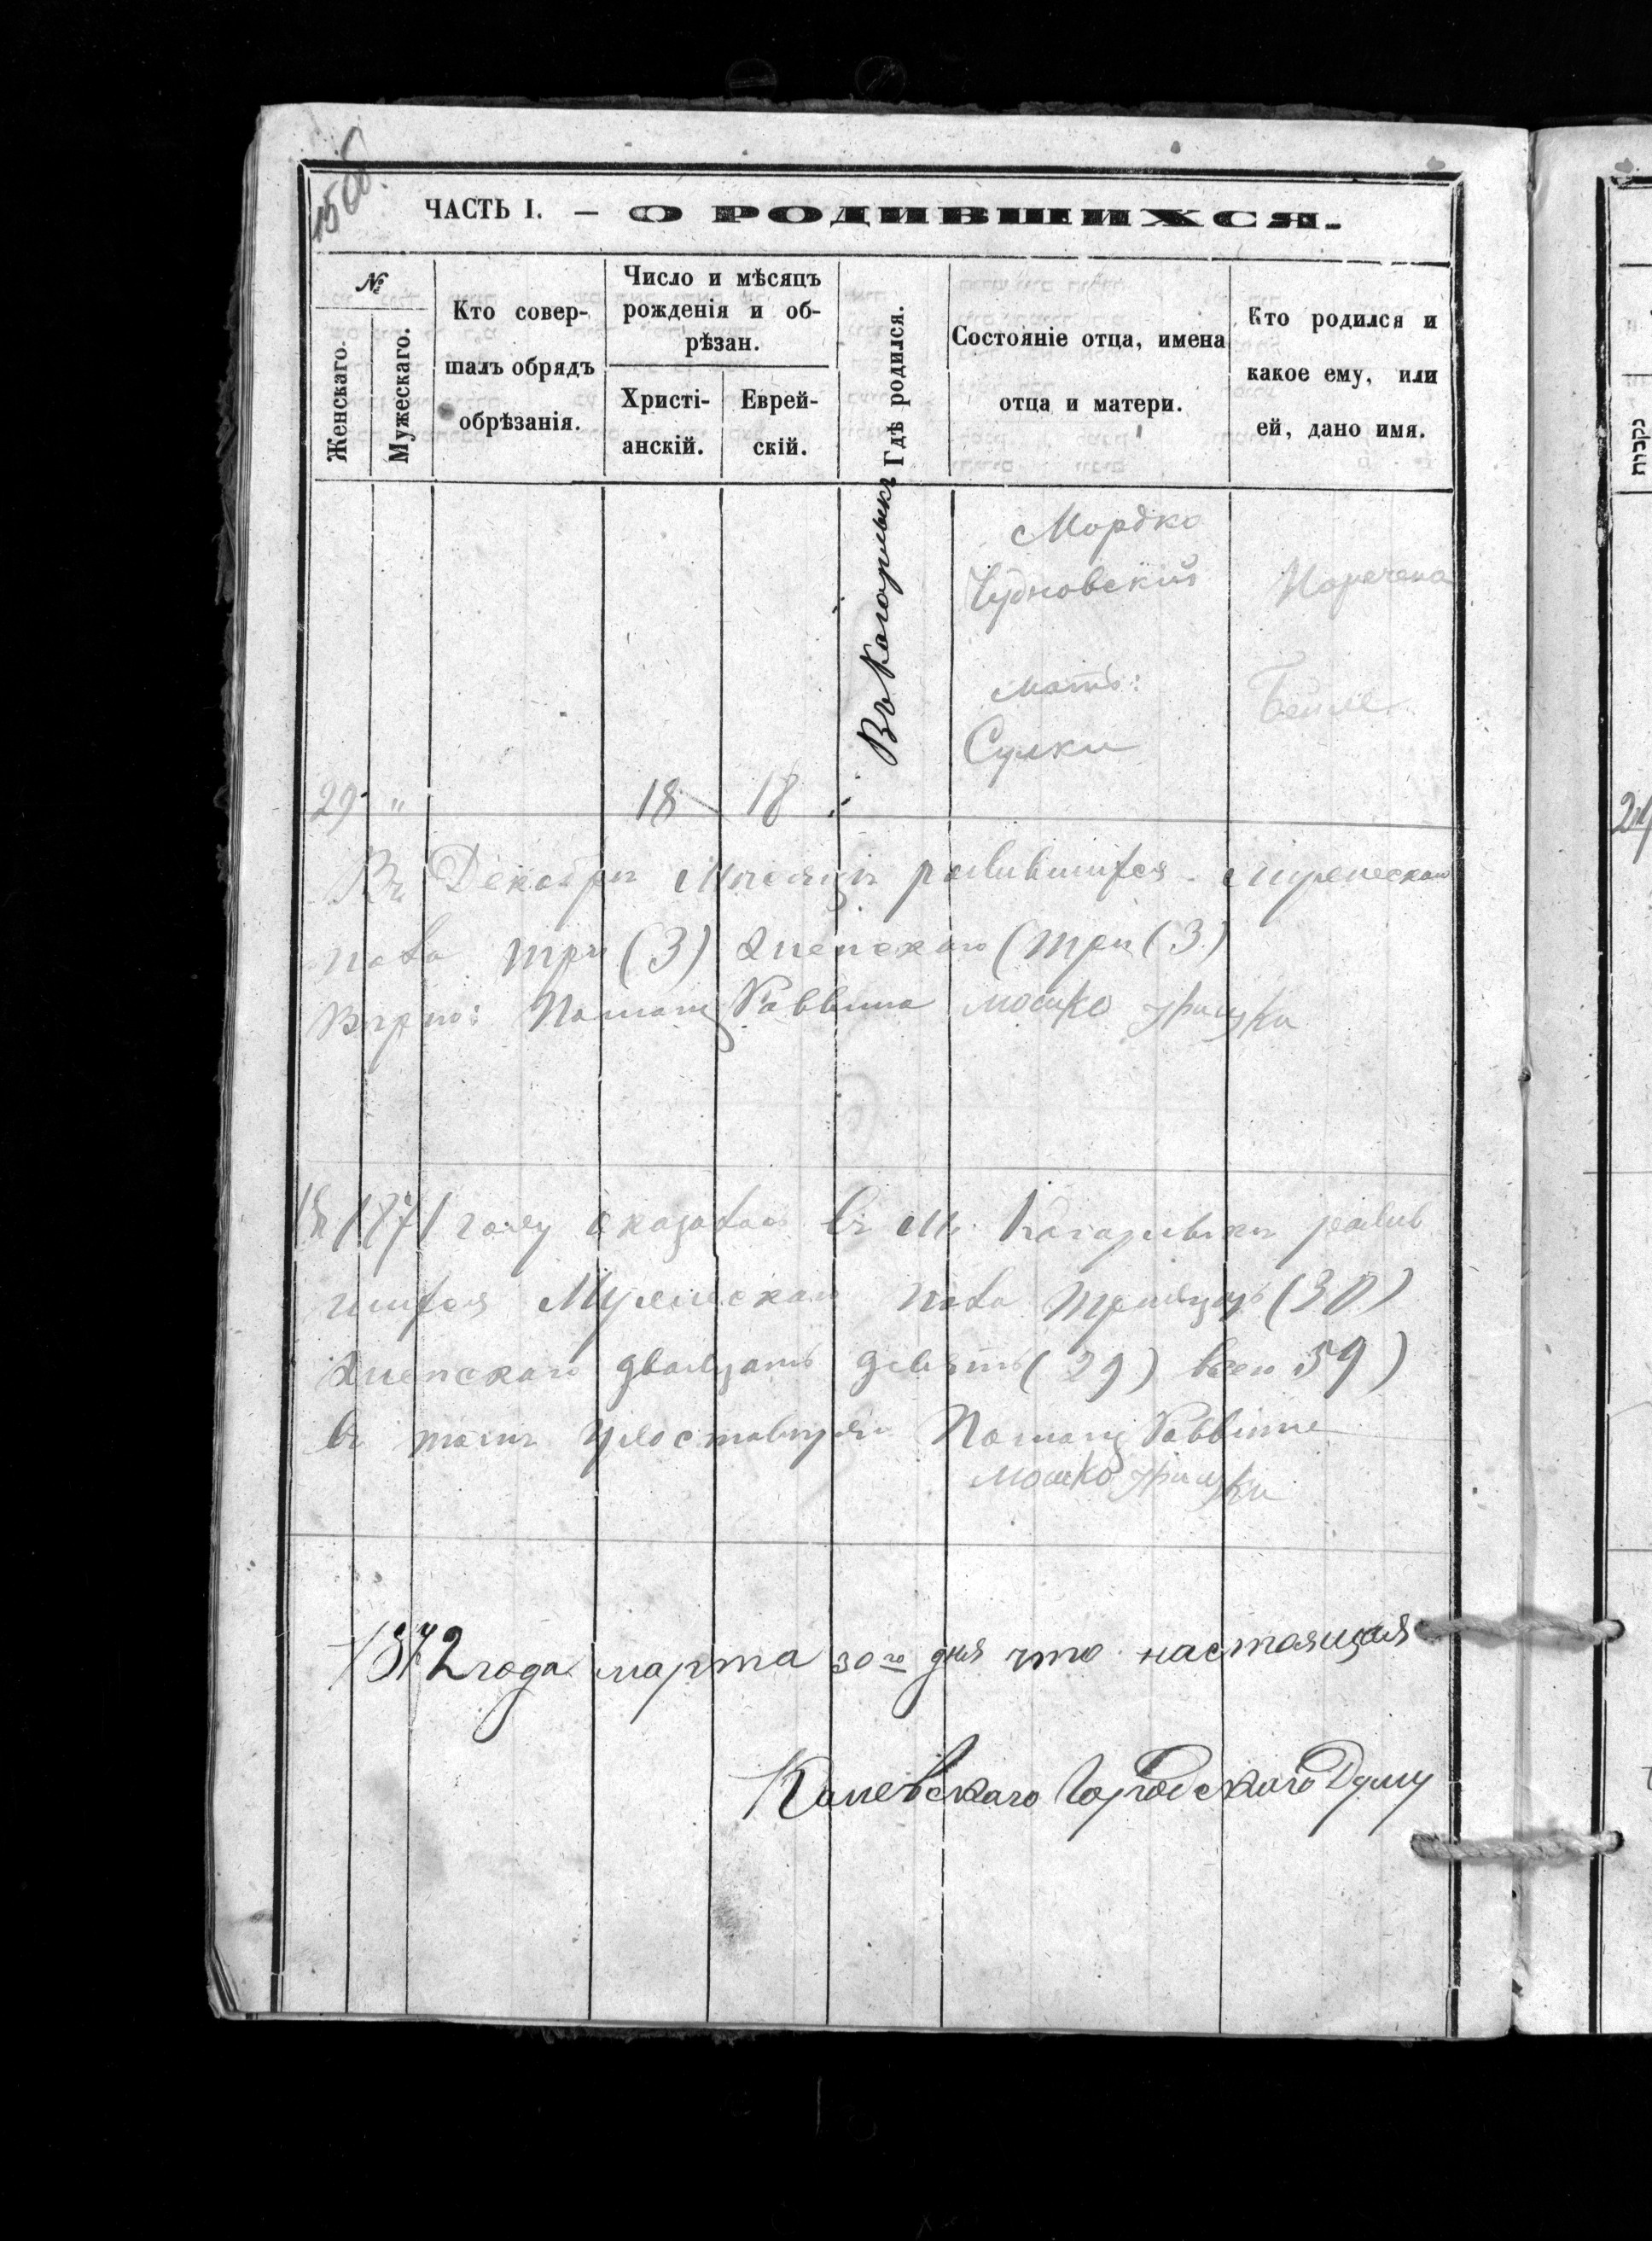 150об.
ЧАСТЬ I. — О РОДИВШИХСЯ.
№
Женскаго.
Мужескаго.
Кто совер-
шалъ обрядъ
обрѣзанія.
Число и мѣсяцъ
рожденія и об-
рѣзан.
Христі-
анскій.
Еврей-
скій.
Гдѣ родился.
Состояніе отца, имена
отца и матери.
Кто родился и
какое ему, или
ей, дано имя.
29 "
18
18
Въ Кагорлыкѣ
Мордко
Чудновскій
мать:
Сулки
Наречена
Бейле
Въ Декабрѣ Мѣсяцѣ родившихся Мужескаго
пола три (3) Женскаго (три (3)
Вѣрно: Помощ Раввина мошко
Въ 1871 году оказалось въ м. Кагарлыкѣ родив
шихся Мужескаго пола тридцать (30)
Женскаго двадцать девять (29) всего 59)
въ томъ удостовѣряю Помощ Раввина
мошко
1872 года марта 30го дня что настоящая
Каневскаго Городскаго Думу
נקבות